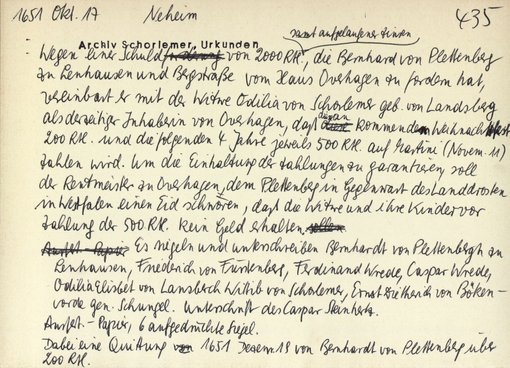 1651 Okt. 17 Neheim 435
samt aufgelaufener Zinsen
Archiv Schorlemer, Urkunden
Wegen einer Schuld von 2000 Rtl., die Bernhard von Plettenberg
zu Lenhausen und Bergstraße vom Haus Overhagen zu fordern hat,
vereinbart er mit der Witwe Odilia von Schorlemer geb. von Landsberg
als derzeitiger Inhaberin von Overhagen, daß daran kommenden Weihnacht
200 Rtl. und die folgenden 4 Jahre jeweils 500 Rtl. auf Martini (Novem. 11)
zahlen wird. Um die Einhaltung der Zahlungen zu garantieren, soll
der Rentmeister zu Overhagen, dem Plettenberg in Gegenwart des Landdrosten
in Westfalen einen Eid schwören, daß die Witwe und ihre Kinder vor
Zahlung der 500 Rtl. kein Geld erhalten
Es siegeln und unterschreiben Bernhardt von Plettenbergh zu
Lenhausen, Friederich von Fürstenberg, Ferdinand Wrede, Caspar Wrede,
Odilia Elisbet von Lansberch Wittib von Schorlemer, Ernst Dietherich von Böken-
vorde gen. Schungel. Unterschrift des Caspar Steinhertz.
Ausfert. - Papier, 6 aufgedrückte Siegel.
Dabei eine Quittung 1651 Dezem. 18 von Bernhardt von Plettenberg über
200 Rtl.